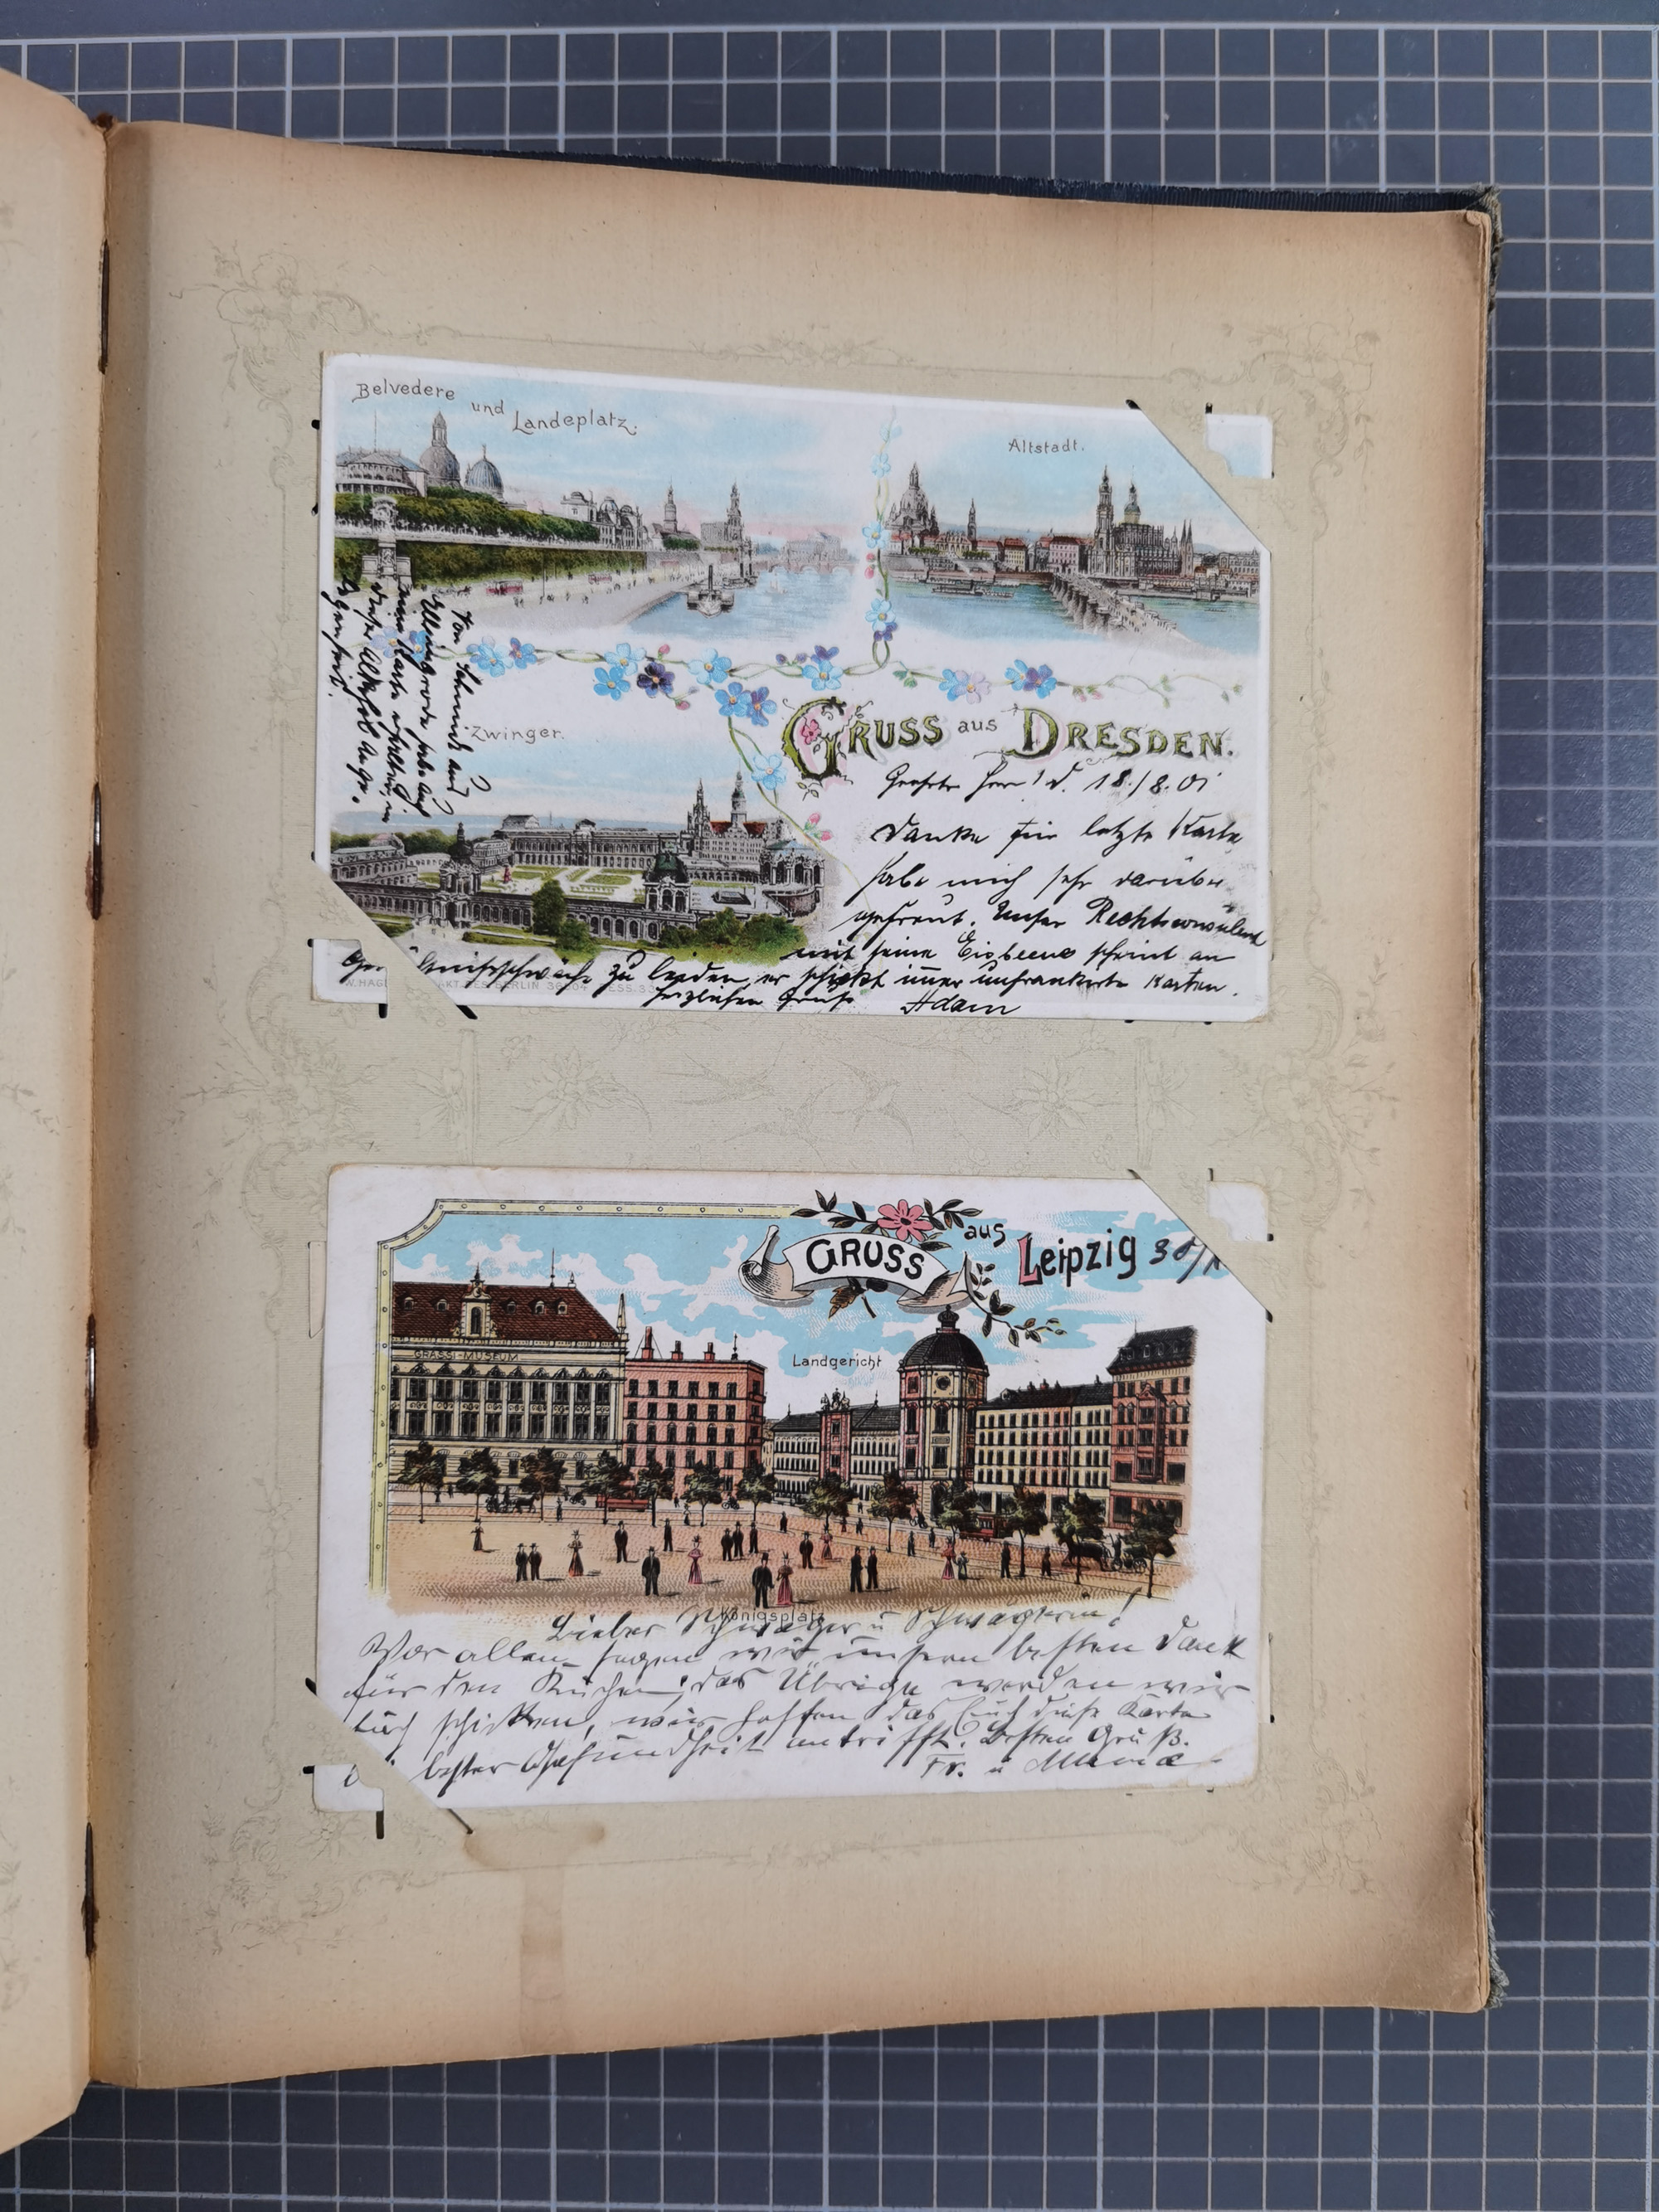 Belvedere und Landeplatz.
Altstadt.
Zwinger.
GRUSS aus DRESDEN.
Geehrter Herr! D. 18./8.01
Danke für letzte Karte
habe mich sehr darüber
gefreut. Unser Rechtsconsulent
mit seine Eisbeene scheint an
zu leiden, er schickt imer unfrankirte Karten.
herzlichen Gruß Adam
Von Schmidt aus
habe auch
eine Karte erhalten, in
dieser
GRUSS aus Leipzig 30/
GRASSI-MUSEUM
Landgericht
Königsplatz
Lieber Schwager u Schwägerin!
Vor allen sagen wir unsern besten Dank
für den Kuchen, das Übrige werden wir
Euch schicken, wir hoffen das Euch diese Karte
bester Gesundheit antrifft. Besten Gruß.
Fr. u